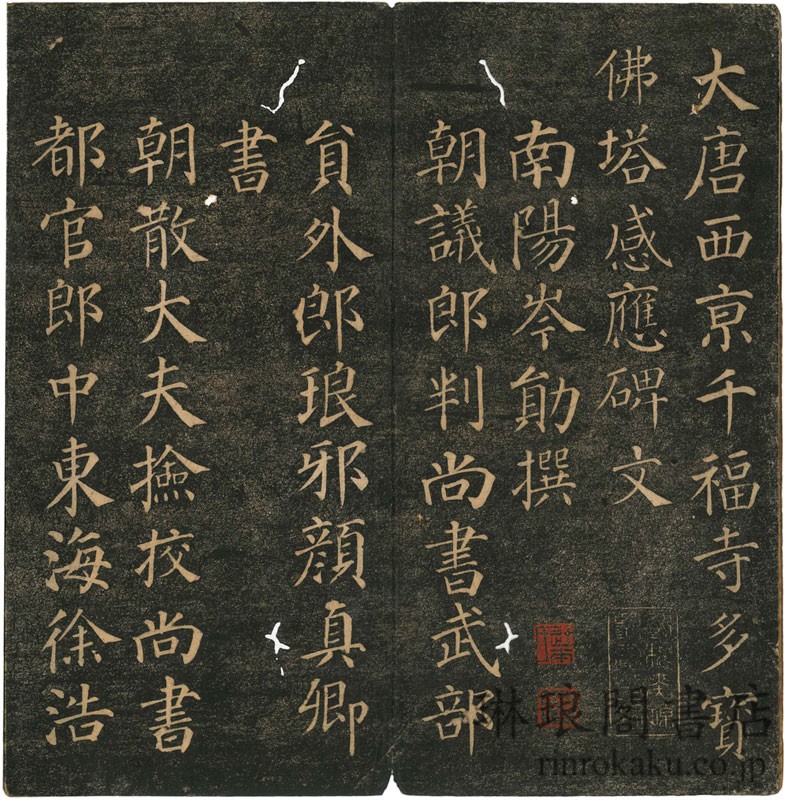 大唐西京千福寺多寶
佛塔感應碑文
南陽岑勛撰
朝議郎判尚書武部
貟外郎琅邪顏真卿
書
朝散大夫撿挍尚書
都官郎中東海徐浩
琳琅閣書店
rinrokaku.co.jp